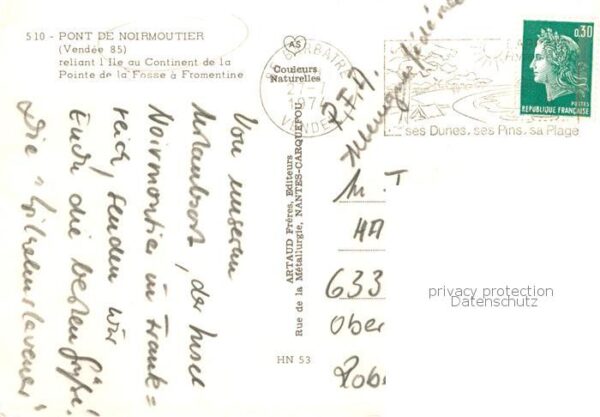 510 - PONT DE NOIRMOUTIER
(Vendée 85)
reliant l'Ile au Continent de la
Pointe de la Fosse à Fromentine
AS
Couleurs
Naturelles
BARBATRE
27-7
1974
VENDEE
ses Dunes. ses Pins. sa Plage
0,30
POSTES
REPUBLIQUE FRANÇAISE
ARTAUD Frères, Editeurs
Rue de la Métallurgie, NANTES-CARQUEFOU
HN 53
Von unserem
Urlaubsort, der Insel
Noirmoutier in Frank=
reich, senden wir
Euch die besten Grüße!
Die "Wilhelmshavener"
R.F.A.
Allemagne fédérale
M. T
633
Ober
Rob
privacy protection
Datenschutz